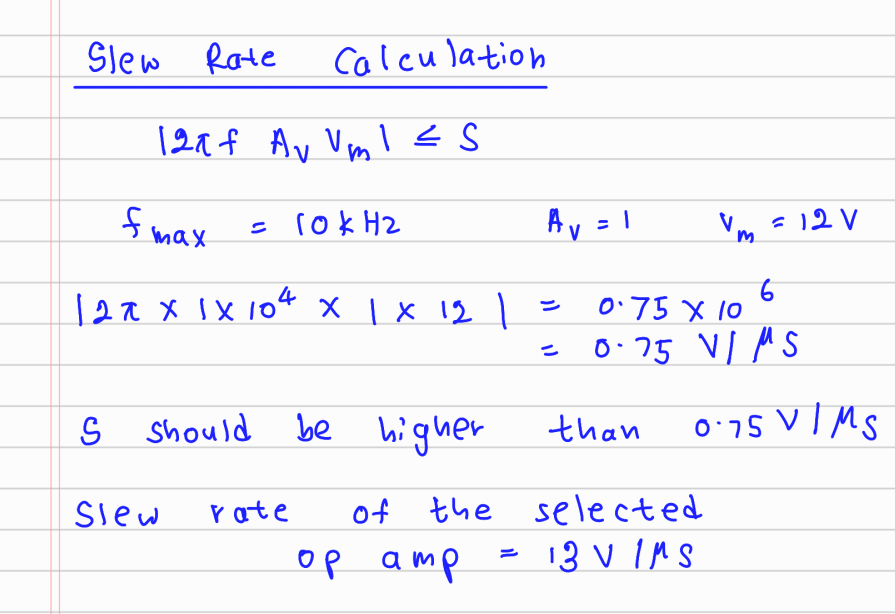 Slew Rate Calculation
|2πf A_V V_m| ≤ S
f_max = 10kHz A_V = 1 V_m = 12V
|2π × 1×10^4 × 1 × 12| = 0.75 × 10^6
= 0.75 V/μs
S should be higher than 0.75V/μs
Slew rate of the selected
op amp = 13V/μs